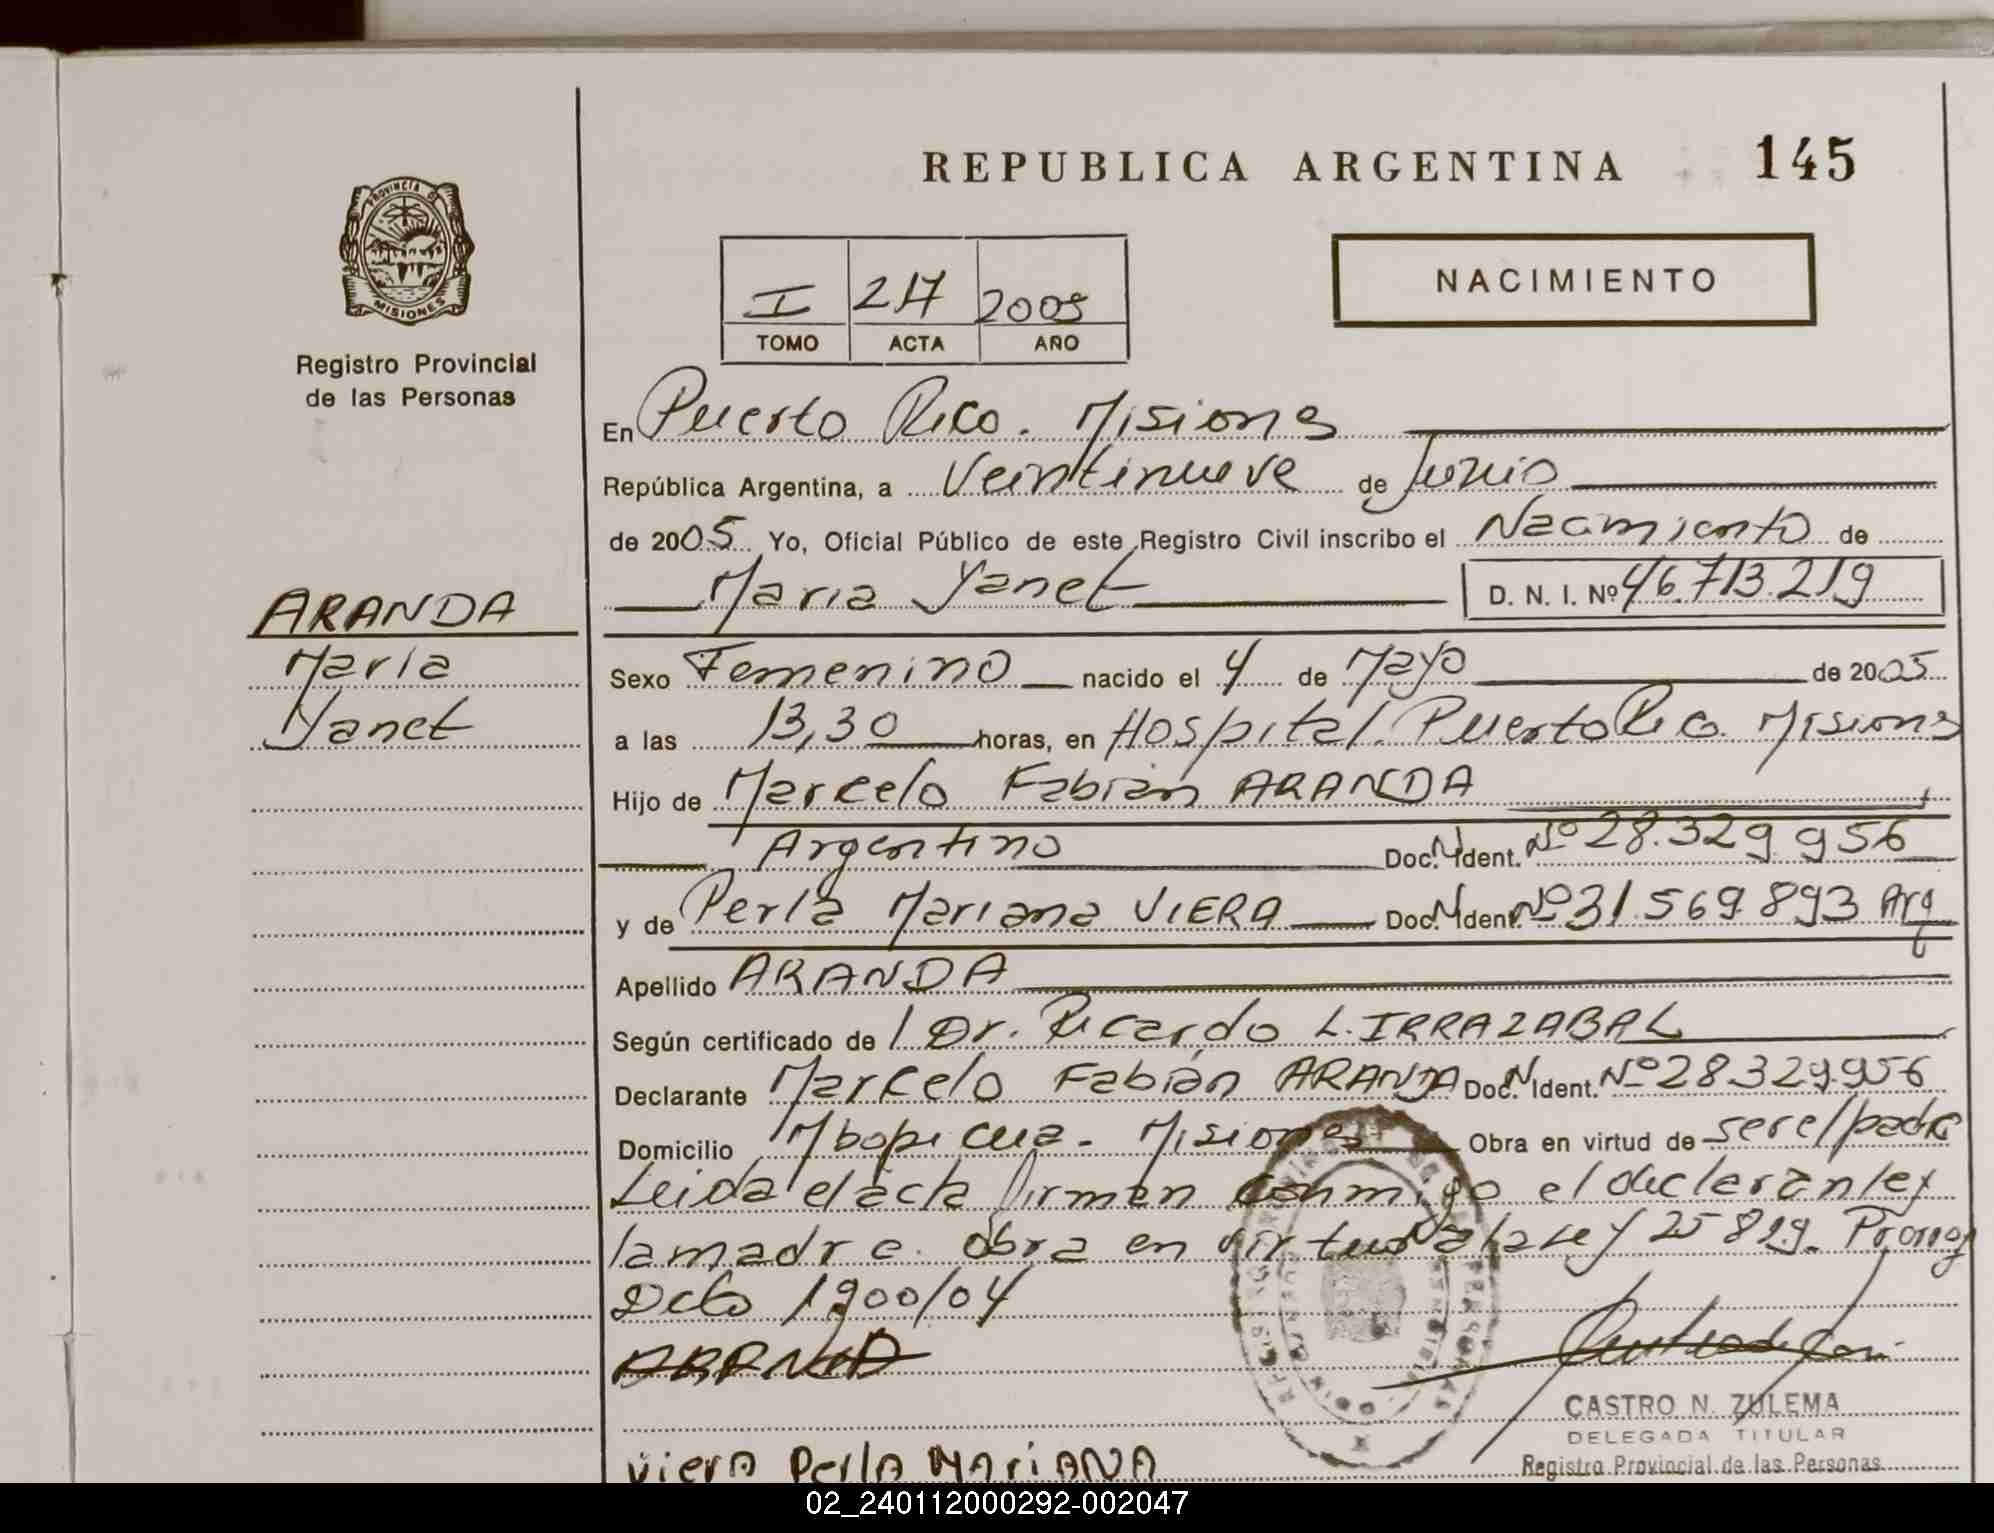 REPUBLICA ARGENTINA 145
PROVINCIA DE
MISIONES
Registro Provincial
de las Personas
I 217 2005
TOMO ACTA AÑO
NACIMIENTO
En Puerto Rico. Misiones
República Argentina, a Veintinueve de Junio
de 2005 Yo, Oficial Público de este Registro Civil inscribo el Nacimiento de
Maria Yanet D. N. I. Nº 46.713.219
ARANDA
Maria
Yanet
Sexo Femenino nacido el 4 de Mayo de 2005
a las 13,30 horas, en Hospital. Puerto Rico. Misiones
Hijo de Marcelo Fabián ARANDA
Argentino Doc. N Ident. Nº 28.329.956
y de Perla Mariana VIERA Doc. N Ident. Nº 31.569.893 Arg
Apellido ARANDA
Según certificado de l Dr. Ricardo L. IRRAZABAL
Declarante Marcelo Fabián ARANDA Doc. N Ident. Nº 28.329.956
Domicilio Mbopicua - Misiones Obra en virtud de ser el padre
Leida el acta firman conmigo el declarante y
la madre. obra en virtud a la Ley 25819. Prorrog
Dcto 1900/04
ARANDA
CASTRO N. ZULEMA
DELEGADA TITULAR
viera Perla MARIANA
Registro Provincial de las Personas
02_240112000292-002047